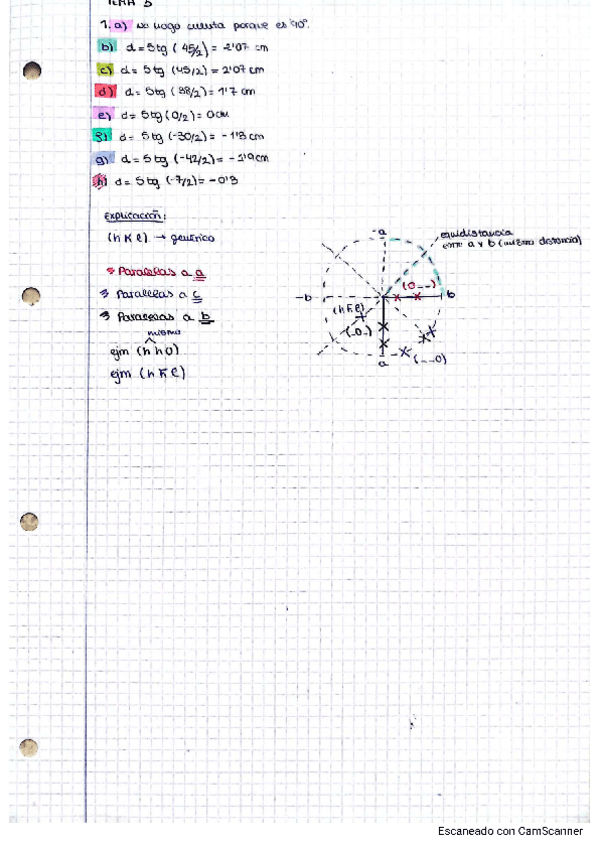 TEMA 5
1. a) no hago cuenta porque es 90º.
b) d = 5 tg (45/2) = 2'07 cm
c) d = 5 tg (45/2) = 2'07 cm
d) d = 5 tg (38/2) = 1'7 cm
e) d = 5 tg (0/2) = 0 cm
d = 5 tg (-30/2) = -1'3 cm
g) d = 5 tg (-42/2) = -1'9 cm
h) d = 5 tg (-7/2) = -0'3
Explicación:
(h k l) → genérico
Paralelas a a
Paralelas a c
Paralelas a b
mismo
ejm (h h 0)
ejm (h k̄ l)
-a
equidistancia
entre a y b (misma distancia)
(0 - -)
-b
b
(h k l)
(- 0 -)
a
(- - 0)
Escaneado con CamScanner